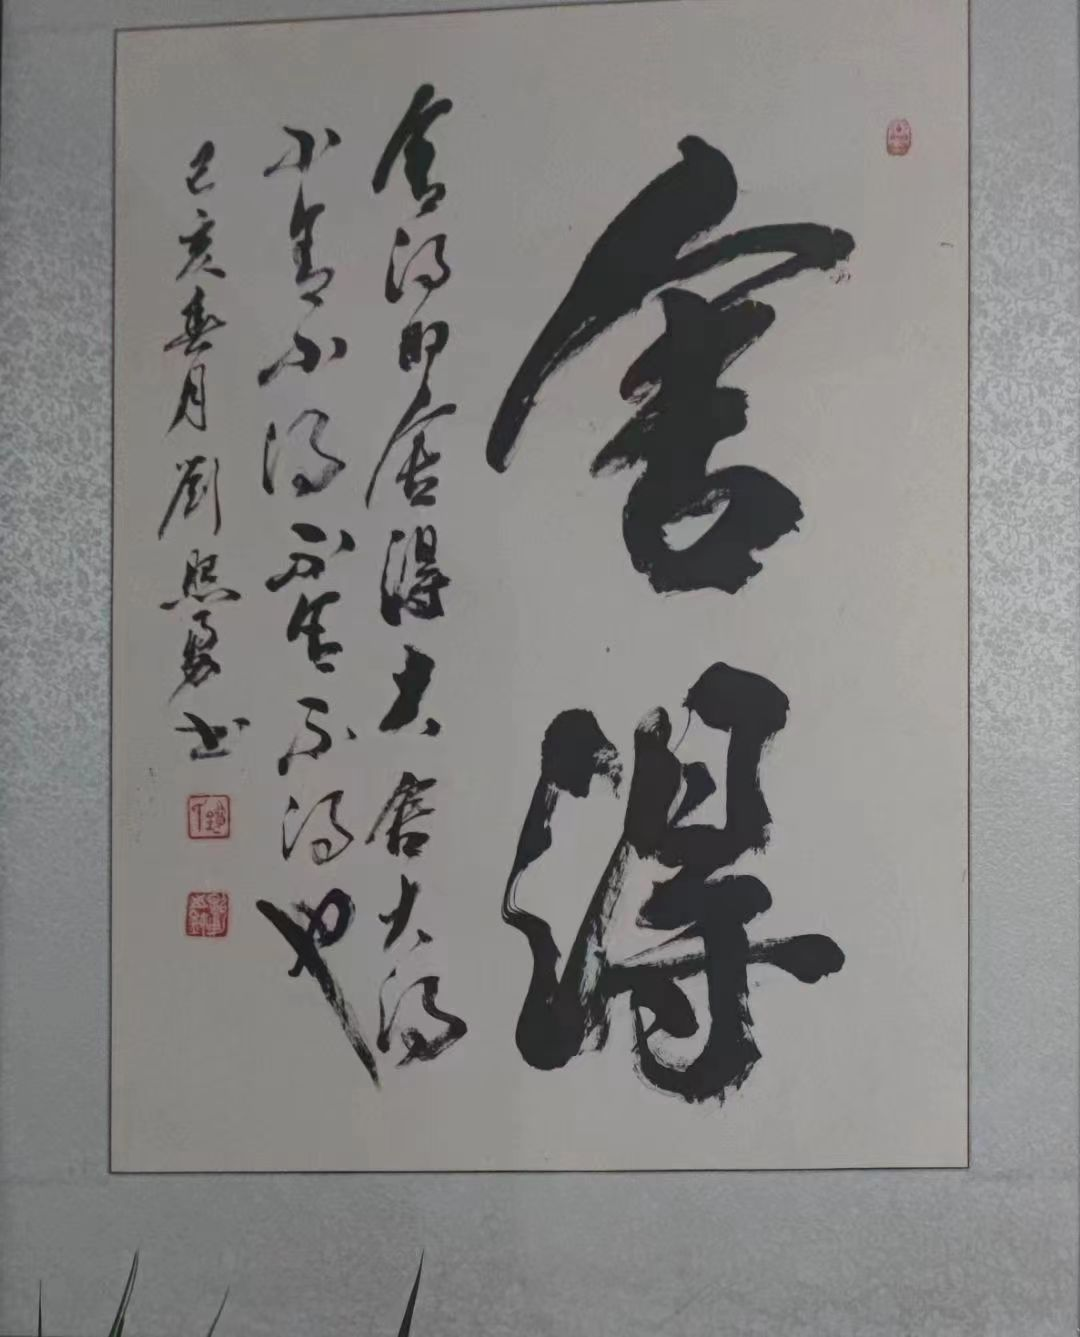 舍得
舍得即舍得大舍大得
小舍小得不舍不得也
己亥春月劉書